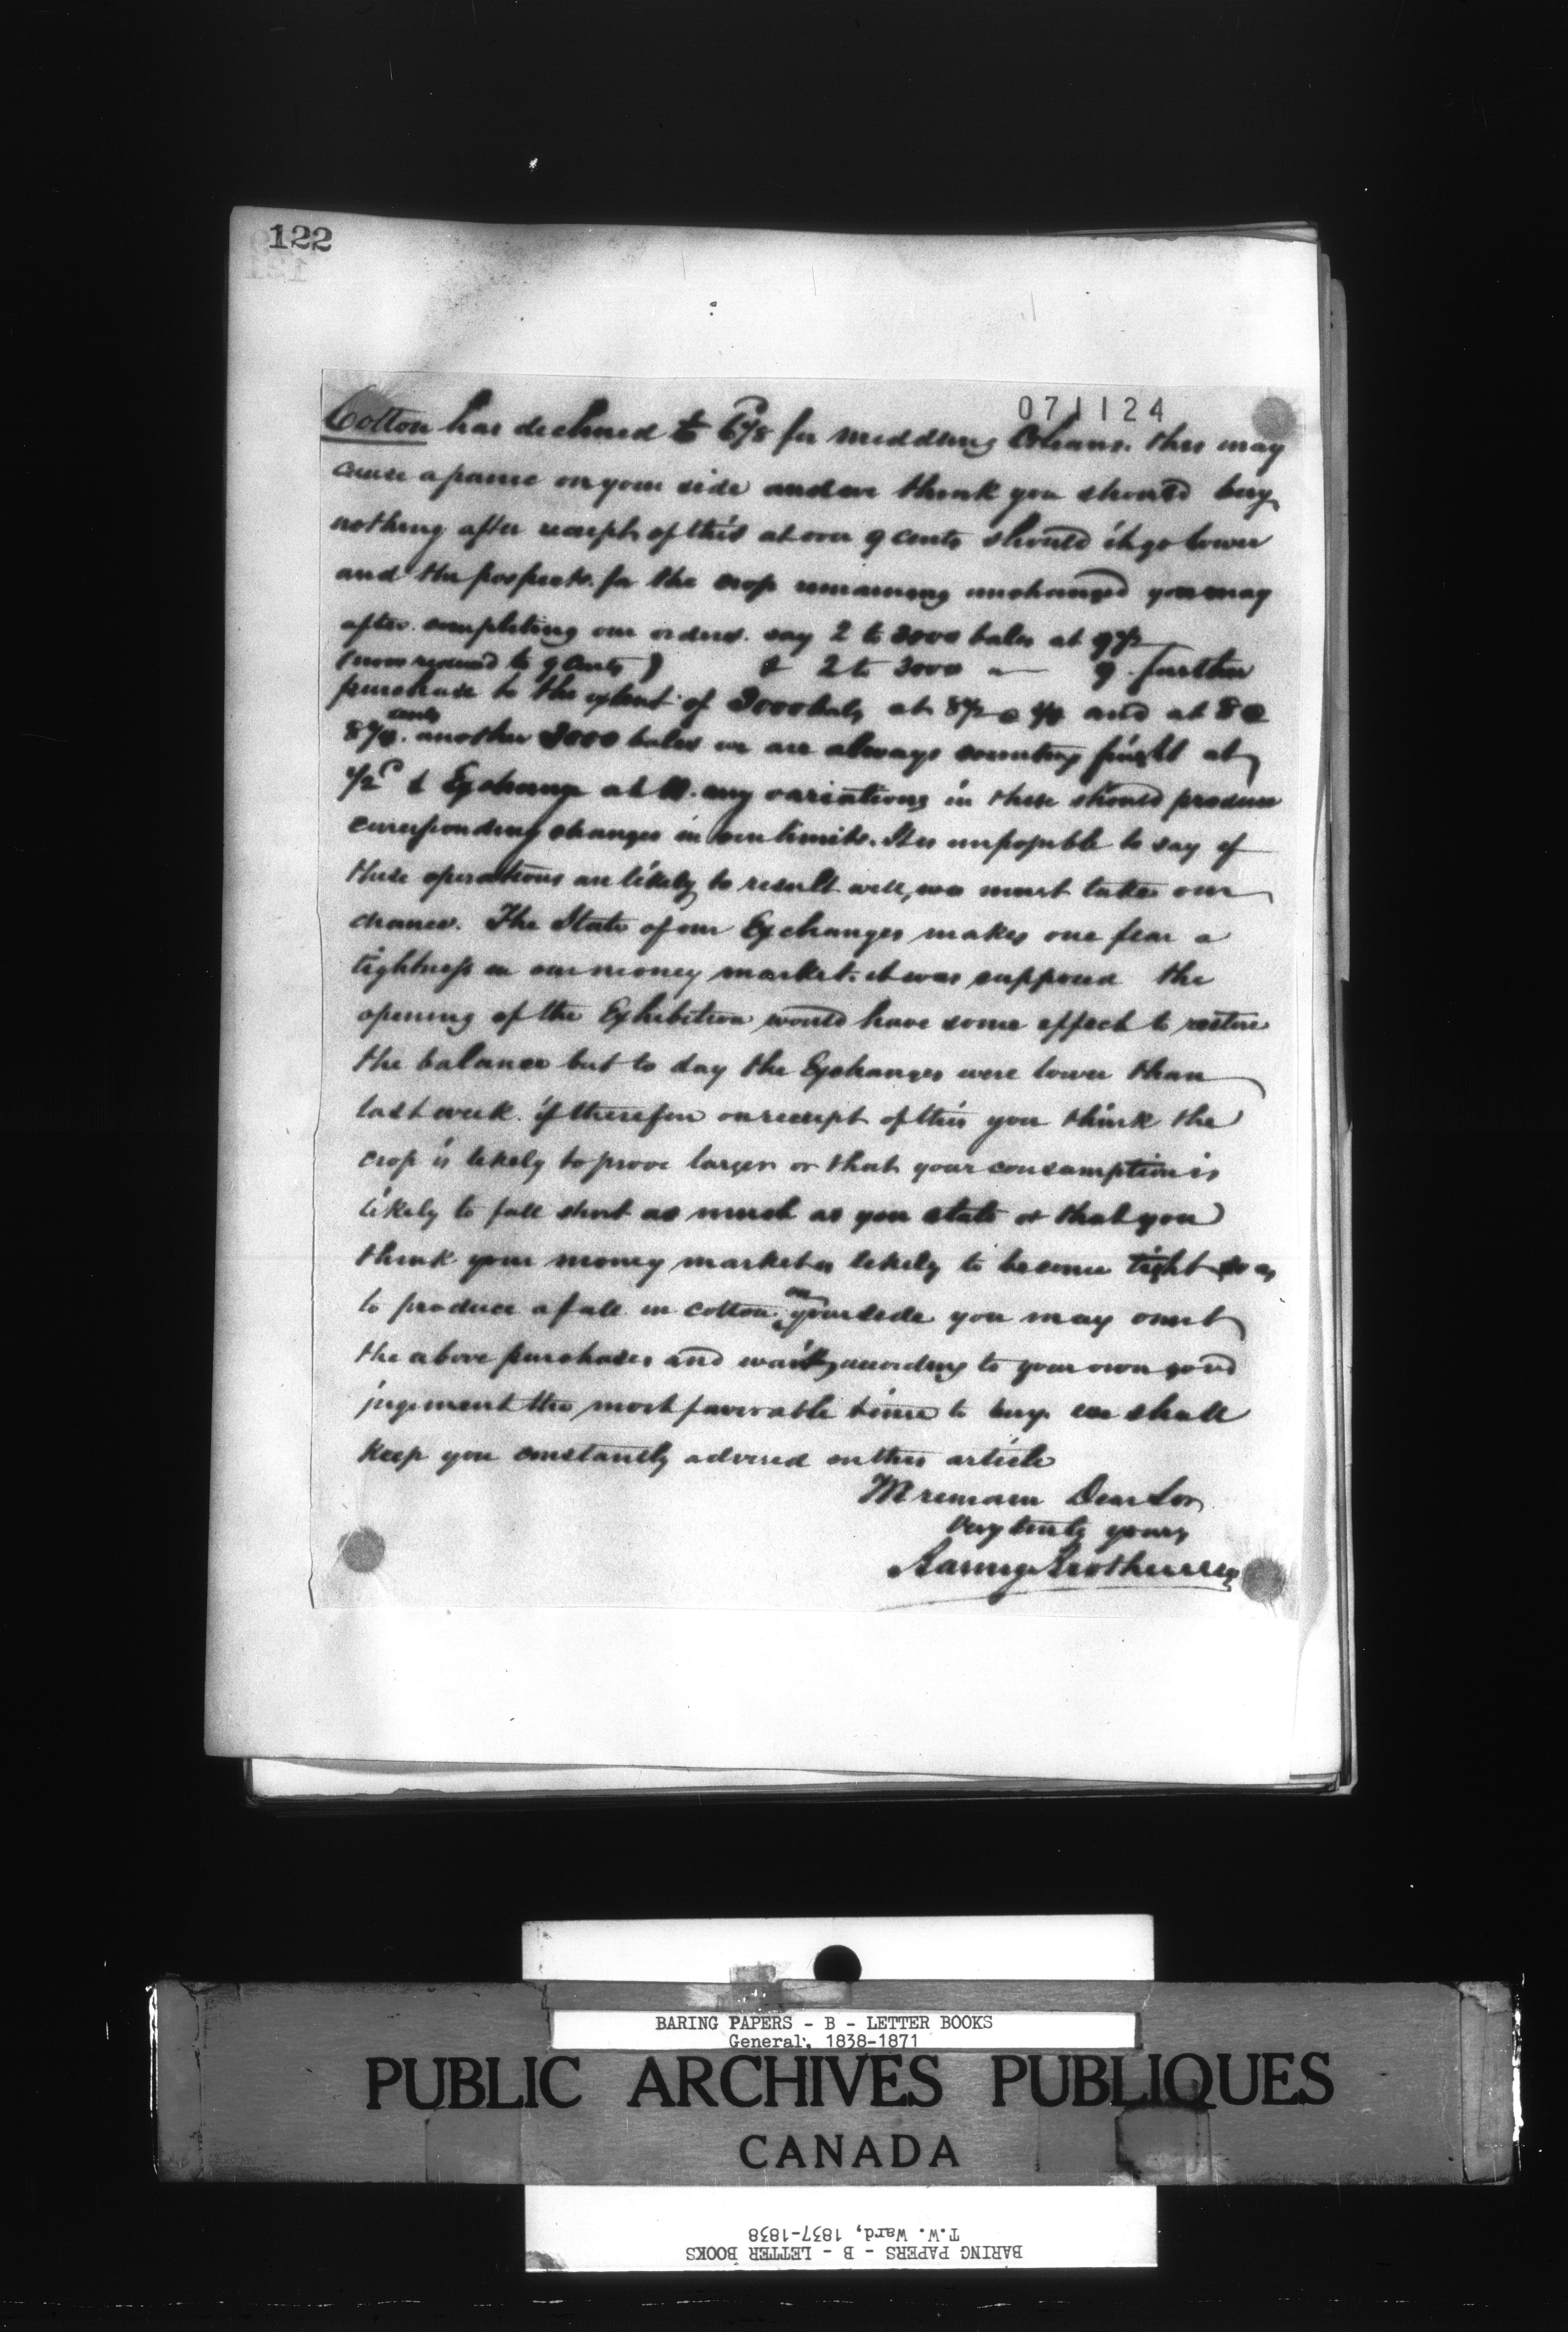 122
071124
Cotton has declined to 6 1/8 for middling Orleans. this may
cause a panic on your side and we think you should buy
nothing after receipt of this at over 9 cents should it go lower
and the prospects for the crop remaining unchanged you may
after completing our orders. say 2 to 3000 bales at 9 1/2
(now reduced to 9 Cents) & 2 to 3000 " 9 further
purchase to the extent of 3000 bales at 8 1/2 a and at 8 a
cents
8 1/4. another 3000 bales we are always counting freight at
1/2 & Exchange at any variations in these should produce
corresponding changes in our limits. It is impossible to say if
these operations are likely to result well, we must take our
chance. The State of our Exchanges makes one fear a
tightness in our money market. it was supposed the
opening of the Exhibition would have some effect to restore
the balance but to day the Exchanges were lower than
last week. if therefore on receipt of this you think the
crop is likely to prove larger or that your consumption is
likely to fall short as much as you state or that you
think your money market is likely to become tight so as
to produce a fall in cotton on your side you may omit
the above purchases and wait according to your own good
jugement the most favorable time to buy. we shall
keep you constantly advised on this article
We remain Dear Sir
Very truly yours
Baring Brothers & Co
BARING PAPERS - B - LETTER BOOKS
General, 1838-1871
PUBLIC ARCHIVES PUBLIQUES
CANADA
T.W. Ward, 1837-1838
BARING PAPERS - B - LETTER BOOKS